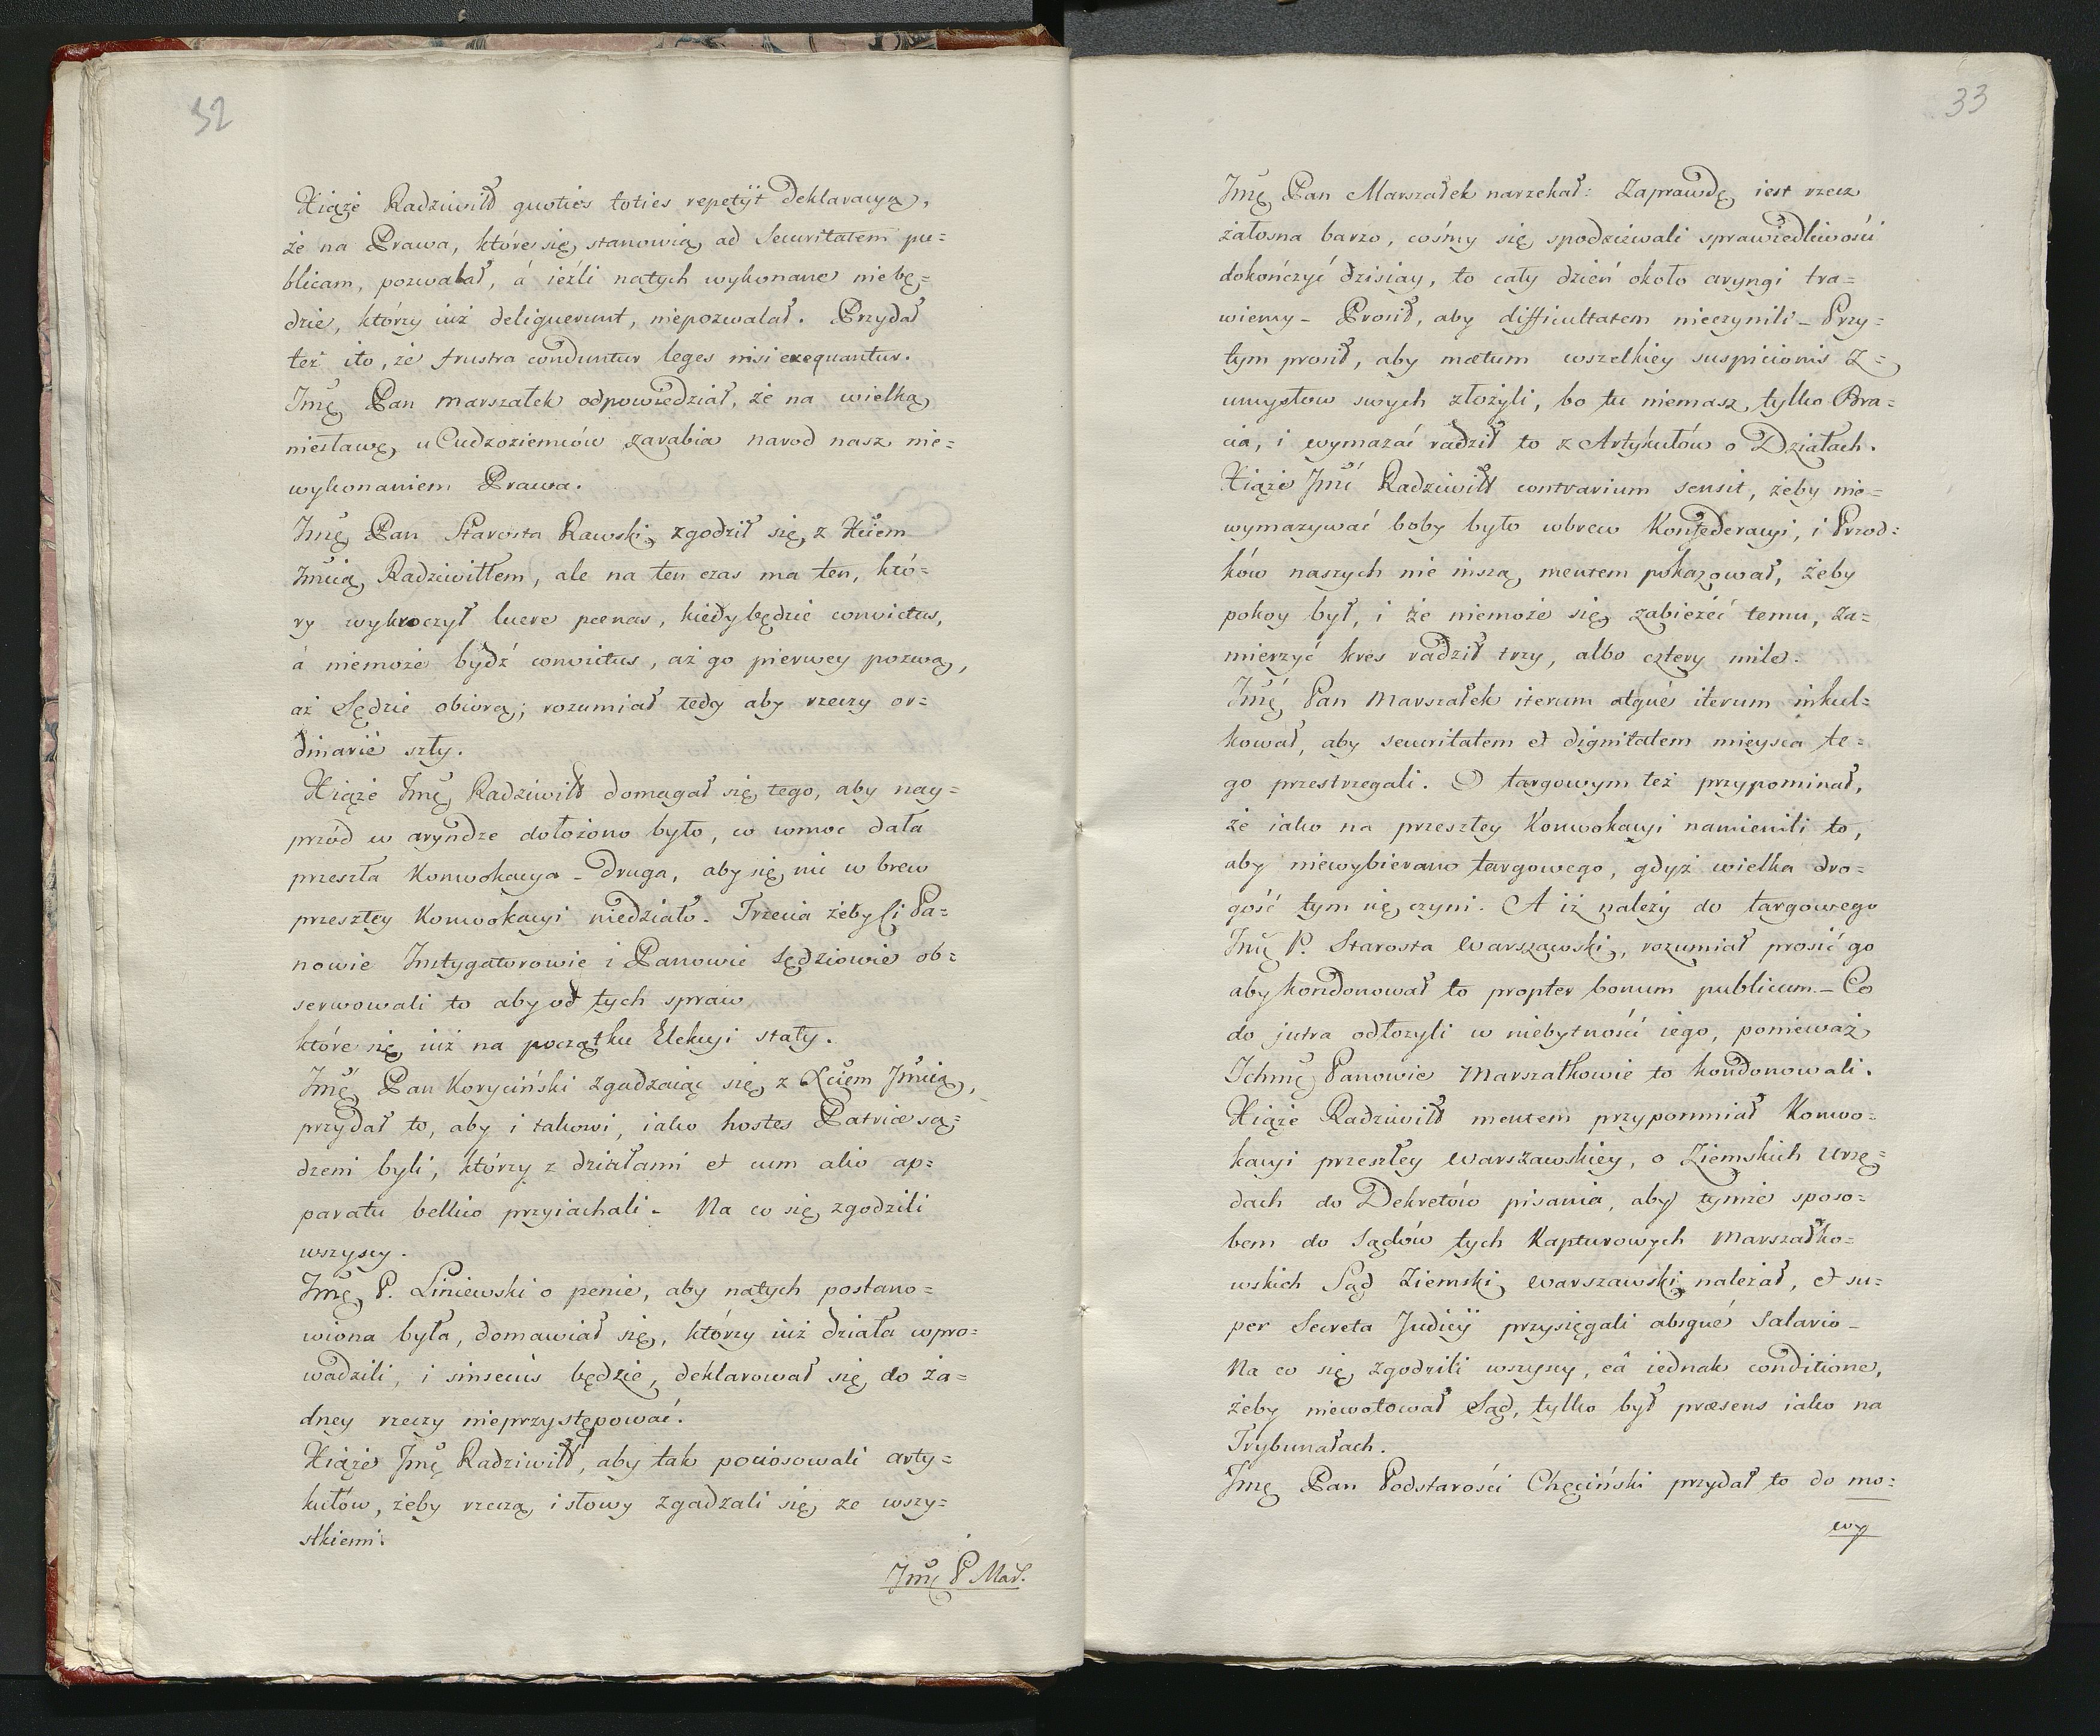 32
Xiąże Radziwiłł quoties toties repetijt Deklaracyą,
że na Prawa, które się stanowią ad Securitatem pu=
blicam, pozwalał, á ieźli natych wykonane niebę=
dzie, którzy iuż deliquerunt, niepozwalał. Przydał
też ito, że frustra conduntur leges nisi exequantur.
Jmę Pan marszałek odpowiedział, że na wielką
niesławę u Cudzoziemców zarabia narod nasz nie=
wykonaniem Prawa.
Jmę Pan Starosta Rawski zgodził się z Xciem
Jmcią Radziwiłłem, ale na ten czas ma ten, któ=
ry wykroczył luere pœnas, kiedy będzie convictus,
á niemoże bydź convictus, aż go pierwey pozwą,
aż Sędzie obiorą; rozumiał tedy aby rzeczy or=
dinarié szły.
Xiąże Jmę Radziwiłł domagał się tego, aby nay=
przód w aryndze dołożono było, co wmoc dała
przeszła Konwokacya – Druga, aby się nic w brew
przeszłey Konwokacyi niedziało. Trzecia żeby Ci Pa=
nowie Instygatorowie i Panowie Sędziowie ob=
serwowali to aby od tych spraw
które się iuż na początku Elekcyi stały.
Jmę Pan Koryciński zgadzaiąc się z Xciem Jmcią,
przydał to, aby i takowi, iako hostes Patriæ są=
dzeni byli, którzy z działami et cum alio ap=
paratu bellico przyiachali. Na co się zgodzili
wszyscy.
Jmę P. Liniewski o penie, aby natych postano=
wiona była, domawiał się, którzy iuż działa wpro=
wadzili, i sinsecus będzie, deklarował się do ża=
dney rzeczy nieprzystępować.
Xiąże Jmę Radziwiłł, aby tak pociosowali arty=
kułów, żeby rzeczą i słowy zgadzali się ze wszy=
stkiemi.
Jmę P Mar.
33
Jmę Pan Marszałek narzekał: Zaprawdę iest rzecz
żałosna barzo, cośmy się spodziewali sprawiedliwości
dokończyć dzisiay, to cały dzień około aryngi tra=
wiemy – Prosił, aby difficultatem nieczynili – Przy=
tym prosił, aby metum wszelkiey suspicionis z=
umysłow swych złożyli, bo tu niemasz, tylko Bra=
cia, i wymazać radził to z Artykułów o Działach.
Xiąże Jmć Radziwiłł contrarium sensit, żeby nie=
wymazywać boby było wbrew Konfederacyi, i Przod=
ków naszych nie inszą mentem pokazował, żeby
pokoy był, i że niemoże się zabieżéć temu, za=
mierzyć kres radził trzy, albo cztery mile.
Jmę Pan Marszałek iterum atqué iterum inkul=
kował, aby securitatem et dignitatem mieysca te=
go przestrzegali. O targowym też przypominał,
że iako na przeszłey Konwokacyi namienili to,
aby niewybierano targowego, gdyż wielka dro=
gość tym się czyni. A iż należy do targowego
Jmę P. Starosta Warszawski, rozumiał prosić go
aby kondonował to propter bonum publicum – Co
do jutra odłożyli w niebytności iego, ponieważ
Ichmę Panowie Marszałkowie to kondonowali.
Xiąże Radziwiłł mentem przypomniał Konwo=
kacyi przeszłey Warszawskiey, o Ziemskich Urzę=
dach do Dekretów pisania, aby tymże sposo=
bem do Sądów tych Kapturowych Marszałko=
wskich Sąd Ziemski Warszawski należał, et su=
per Secreta Judicij przysięgali absqué Salario –
Na co się zgodzili wszyscy, eâ iednak conditione,
żeby niewotował Sąd, tylko był præsens iako na
Trybunałach.
Jmę Pan Podstarości Chęciński przydał to do mo=
wy